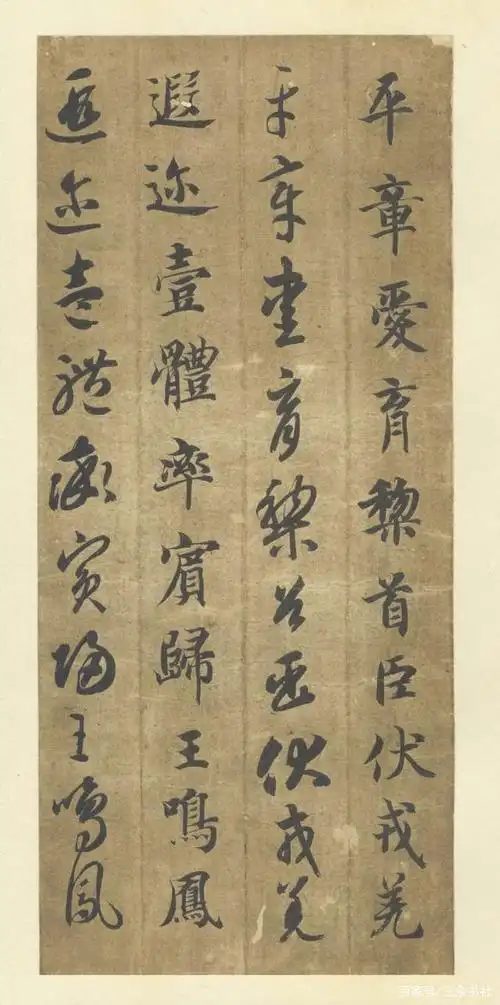 平章愛育黎首臣伏戎羌
平章愛育黎首臣伏戎羌
遐迩壹體率賓歸王鳴鳳
遐迩壹體率賓歸王鳴鳳
百家号/三余书社